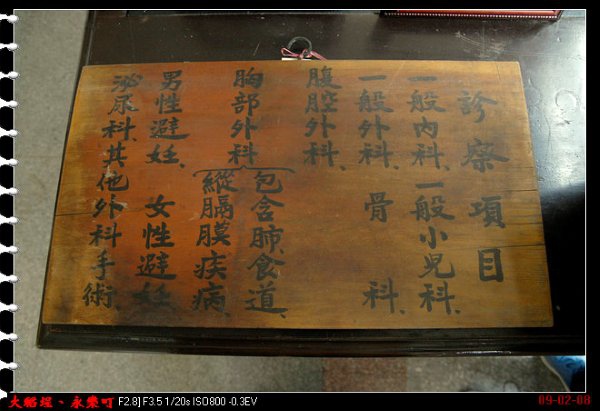 診察項目
一般內科、一般小兒科、
一般外科、骨科、
腹腔外科、
胸部外科{包含肺、食道、
縱膈膜疾病、
男性避妊、女性避妊、
泌尿科、其他外科手術、
大貓埕、永樂町 F2.8] F3.5 1/20s ISO800 -0.3EV
09-02-08